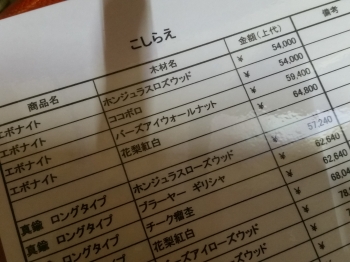 こしらえ
商品名 木材名 金額(上代) 備考
エボナイト ホンジュラスローズウッド ¥ 54,000
エボナイト ココボロ ¥ 54,000
エボナイト バーズアイウォールナット ¥ 59,400
エボナイト 花梨紅白 ¥ 64,800
真鍮 ロングタイプ ホンジュラスローズウッド ¥ 57,240
真鍮 ロングタイプ ブラーヤー ギリシャ ¥ 62,640
ロングタイプ チーク瘤杢 ¥ 62,640
タイプ 花梨紅白 ¥ 68,04
ーズアイローズウッド ¥ 78